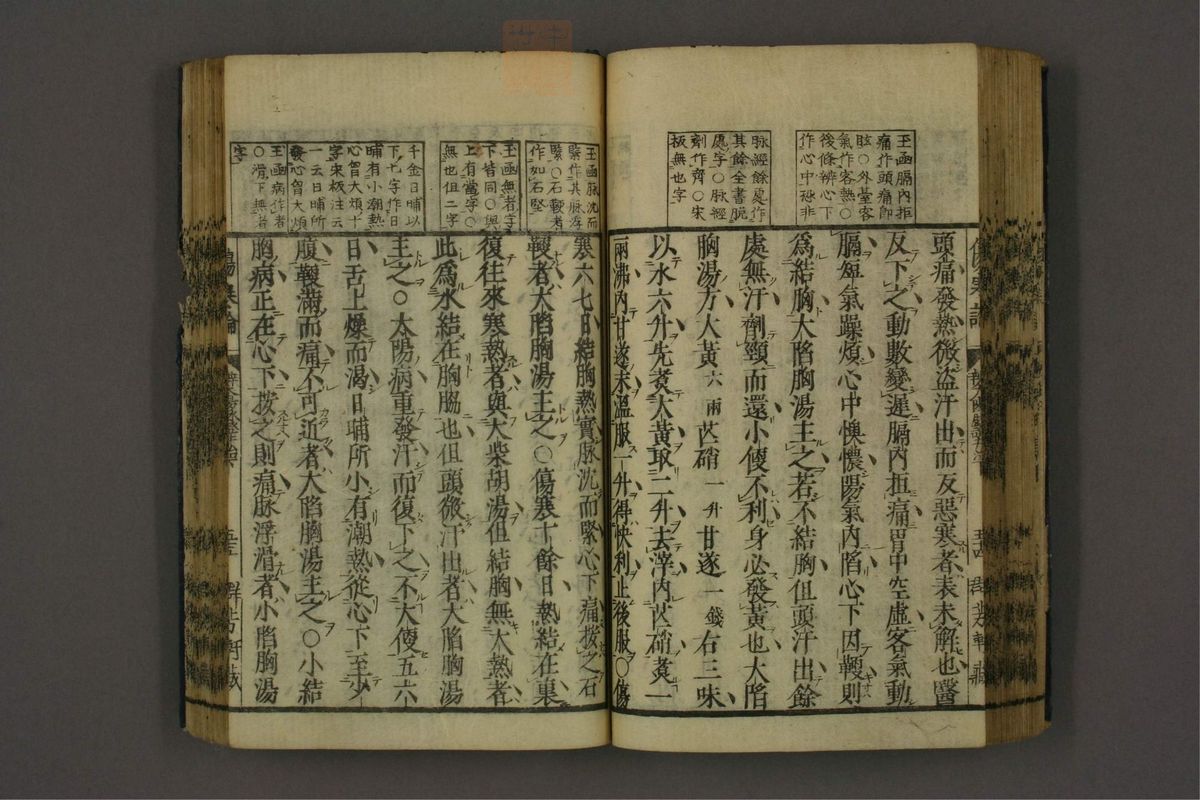 玉函膈內拒
痛作頭痛即
眩○外臺客
氣作客熱○
後條辨心下
作心中恐非
脉經餘處作
其餘全書脫
處字○脉經
劑作齊○宋
板無也字
頭痛發熱微盜汗出而反惡寒者表未解也醫
反下之動數變遲膈內拒痛胃中空虛客氣動
膈短氣躁煩心中懊憹陽氣內陷心下因鞕則
爲結胸大陷胸湯主之若不結胸但頭汗出餘
處無汗劑頸而還小便不利身必發黃也大陷
胸湯方大黃六兩芒硝一升甘遂一錢右三味
以水六升先煮大黃取二升去滓內芒硝煮一
兩沸內甘遂末溫服一升得快利止後服○傷
玉函脉沈而
緊作其脉浮
緊○石鞕者
作如石堅
玉函無者字
下皆同○與
上有當字○
無也但二字
千金日晡以
下七字作日
晡有小潮熱
心胷大煩十
字宋板注云
一云日晡所
發心胷大煩
玉函病作者
○滑下無者
字
寒六七日結胸熱實脉沈而緊心下痛按之石
鞕者大陷胸湯主之○傷寒十餘日熱結在裏
復往來寒熱者與大柴胡湯但結胸無大熱者
此爲水結在胸脇也但頭微汗出者大陷胸湯
主之○太陽病重發汗而復下之不大便五六
日舌上燥而渴日晡所小有潮熱從心下至少
腹鞕滿而痛不可近者大陷胸湯主之○小結
胸病正在心下按之則痛脉浮滑者小陷胸湯